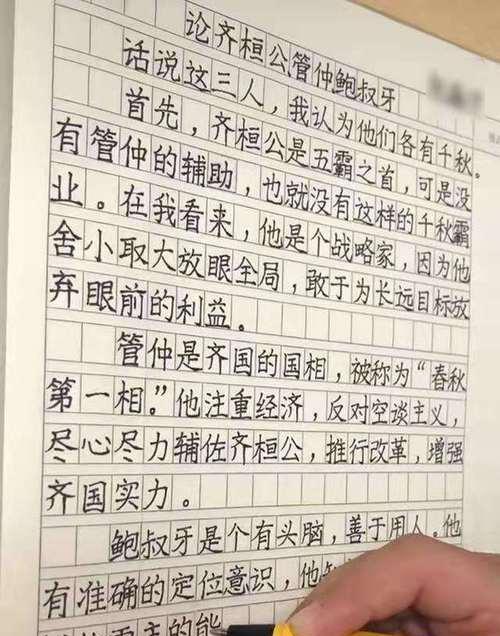 论齐桓公管仲鲍叔牙
话说这三人，我认为他们各有千秋。
首先，齐桓公是五霸之首，可是没
有管仲的辅助，也就没有这样的千秋霸
业。在我看来，他是个战略家，因为他
舍小取大放眼全局，敢于为长远目标放
弃眼前的利益。
管仲是齐国的国相，被称为“春秋
第一相。”他注重经济，反对空谈主义，
尽心尽力辅佐齐桓公，推行改革，增强
齐国实力。
鲍叔牙是个有头脑，善于用人。他
有准确的定位意识，他知
的能